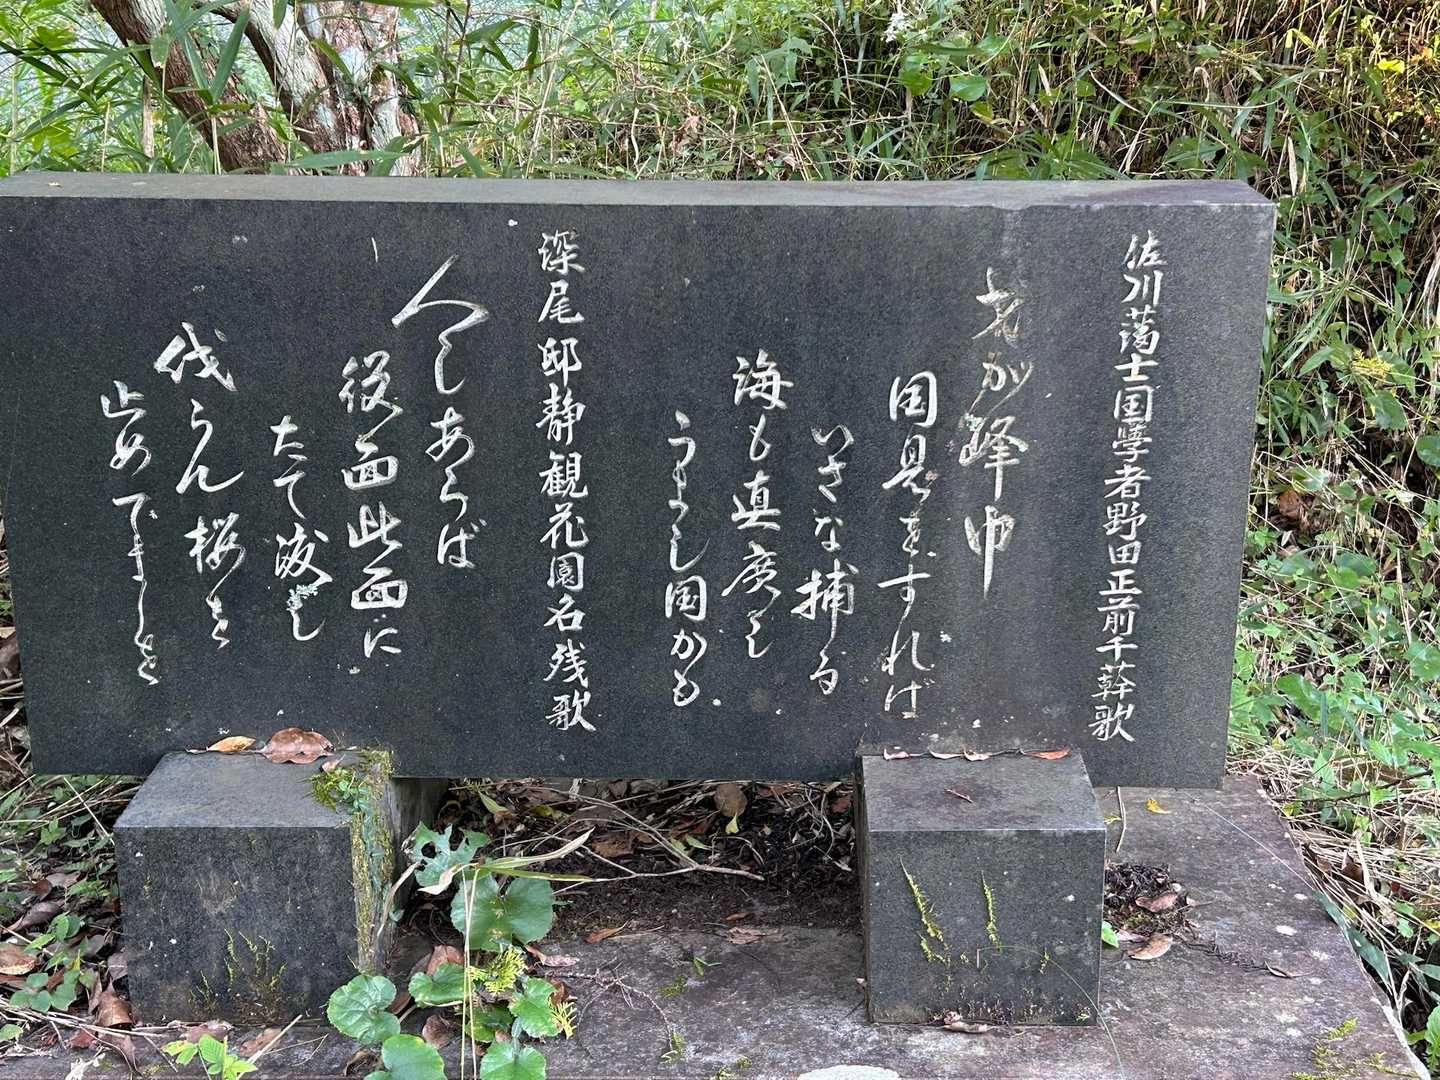 佐川藩士国学者野田正前千幹歌
老が峰ゆ
国見をすれば
いさな捕る
海も真広し
うまし国かも
深尾邸静観花園名残歌
人しあらば
彼面此面に
たて渡し
伐らん桜を
止めでましを